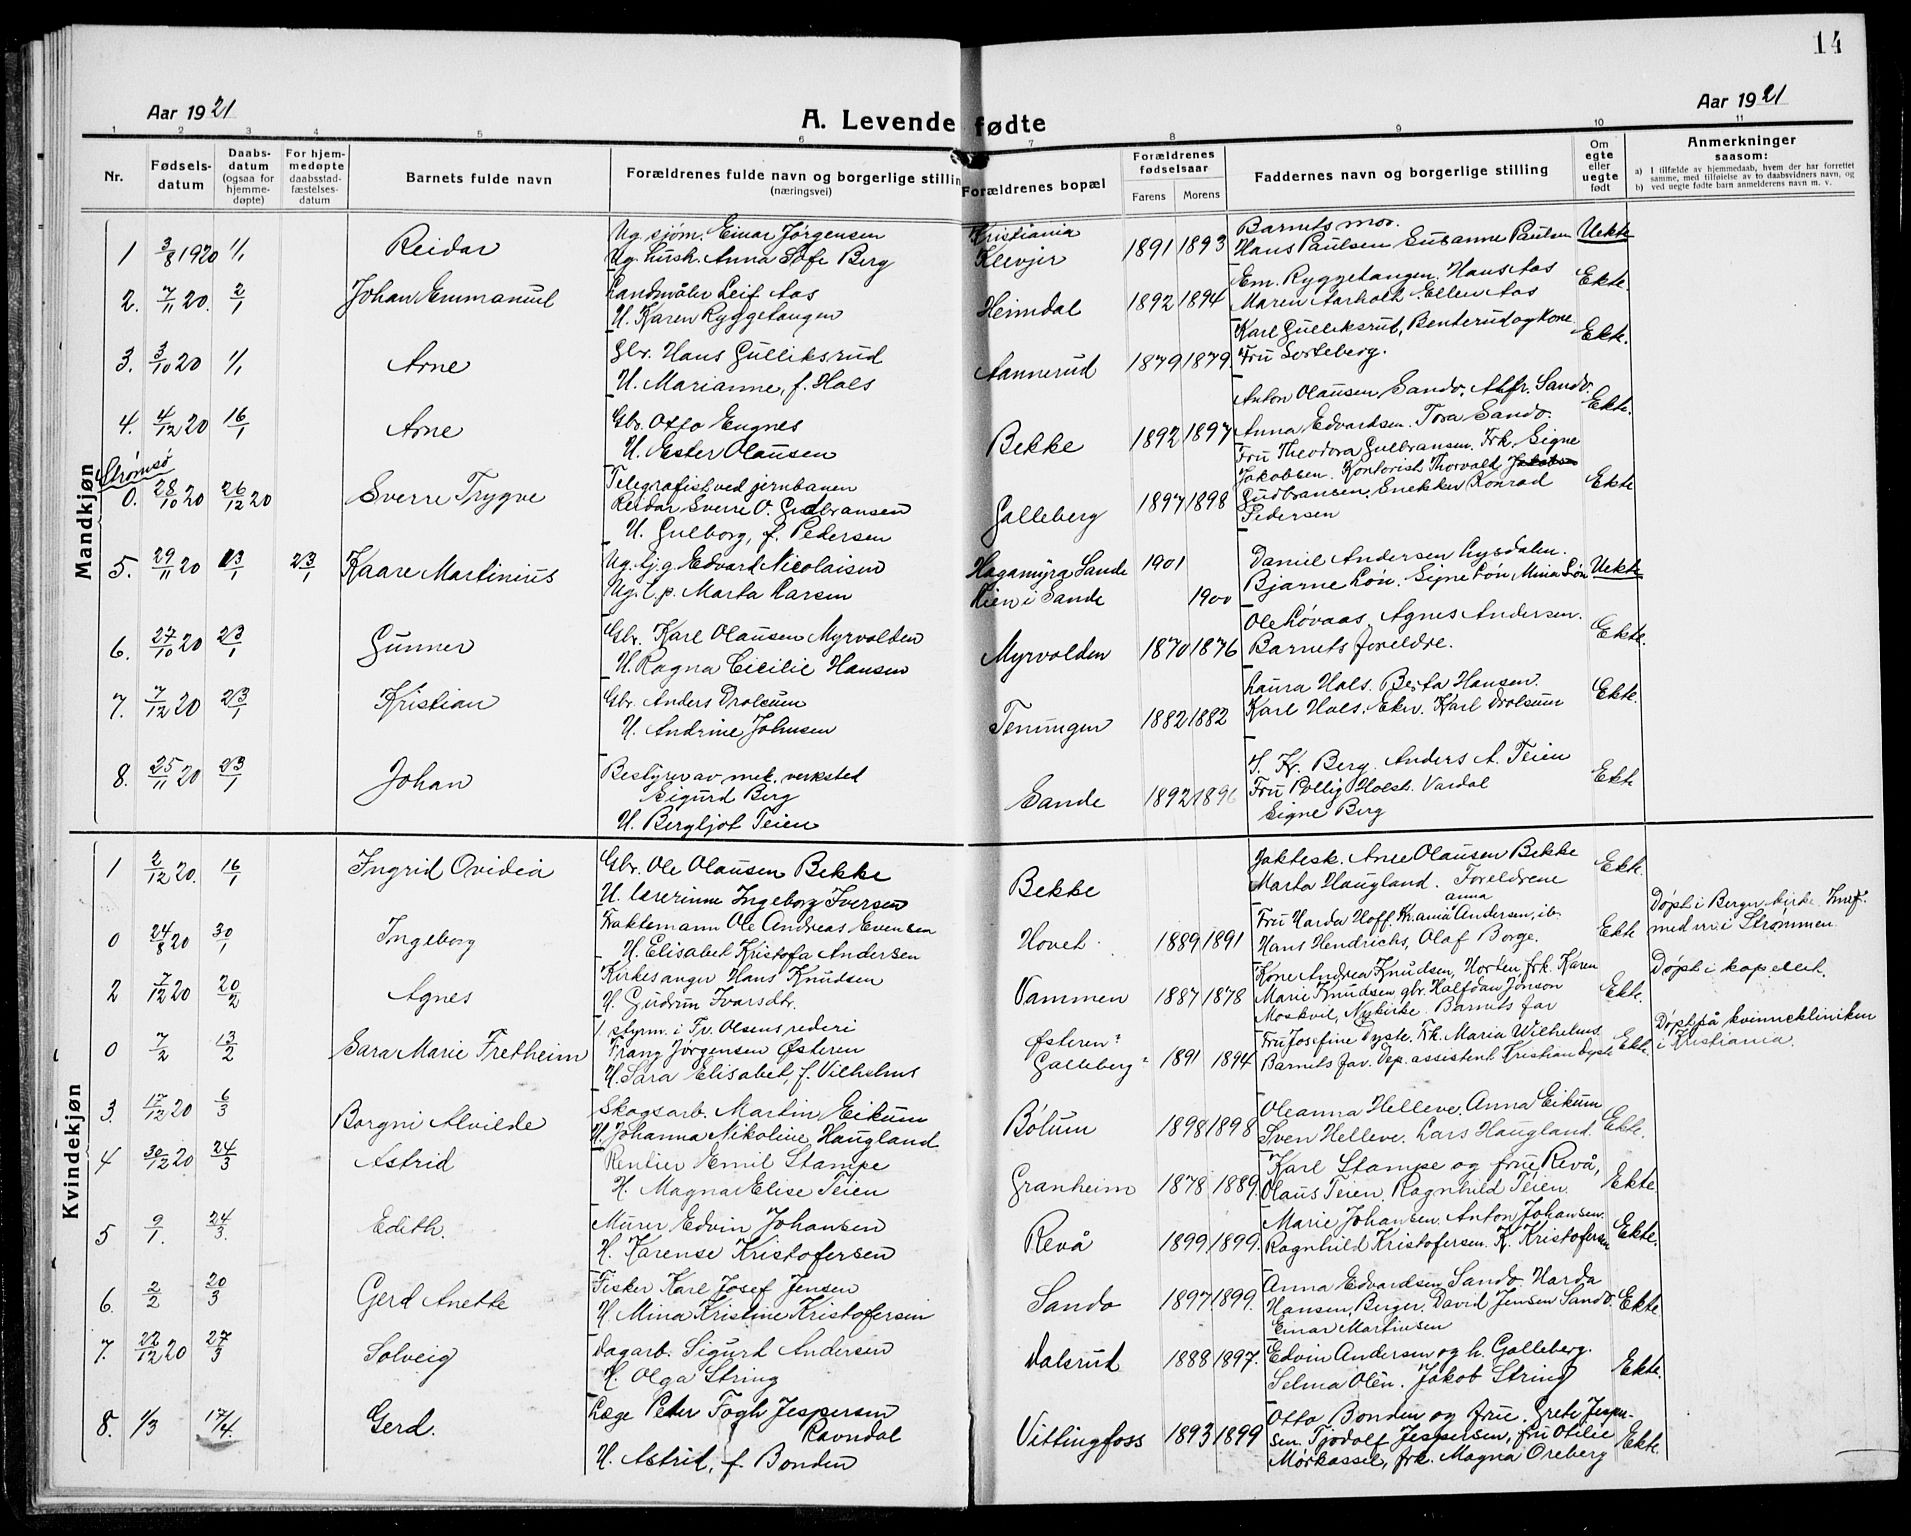 14
Aar 1921
A. Levende fødte
Aar 1921
1 2 3 4 5 6 7 8 9 10 11
Nr.
Fødsels-
datum
Daabs-
datum
(ogsaa for
hjemme-
døpte)
For hjem-
medøpte
daabsstad-
fæstelses-
datum
Barnets fulde navn
Forældrenes fulde navn og borgerlige stilling
(næringsvei)
Forældrenes bopæl
Forældrenes
fødselsaar
Farens Morens
Faddernes navn og borgerlige stilling
Om
egte
eller
uegte
født
Anmerkninger
saasom:
a) I tilfælde av hjemmedaab, hvem der har forrettet
samme, med tilføielse av to daabsvidners navn, og
b) ved uegte fødte barn anmelderens navn m. v.
Mandkjøn
1 3/8 1920 1/1 Reidar
Ug. sjøm. Einar Jørgensen
Ug. hush. Anna Sofie Berg
Kristiania
Klevjer
1891 1893
Barnets mor.
Hans Paulsen Susanne Paulsen
Uekte
2. 7/11 20. 2/1 Johan Emmanuel
Landmåler Leif Aas
H. Karen Ryggetangen
Heimdal 1892 1894
Em. Ryggetangen. Hans Aas
Maren Aarholt Ellen Aas
Ekte.
3. 3/10 20 1/1 Arne
Gbr. Hans Gulliksrud
H. Marianne, f. Hals
Aannerud 1879 1879.
Karl Gulliksrud, Benterud og Kone.
Fru Sorteberg.
Ekte.
4. 4/12 20 16/1 Arne
Gbr. Otto Engnes
H. Ester Olausen
Bekke 1892 1897
Anton Olausen Sando. Alfr. Sando.
Anna Edvardsen. Tora Sando.
Ekte.
Strømsø
0. 28/10 20 26/12 20 Sverre Trygve
Telegrafist ved jernbanen
Reidar Sverre O. Gudbransen
H. Gulborg, f. Pedersen
Galleberg 1897 1898
Fru Theodora Gulbransen. Frk. Signe
Jakobsen. Kontorist Thorvald Jakobsen
Gudbransen, Snekker Konrad
Pedersen
Ekte
5. 29/11 20 23/1 23/1 Kaare Martinius
Ug. tj.g. Edvart Nicolaisen
Ug. t.p. Marta Larsen
Hagamyra Sande 1901
Lien i Sande 1900
Daniel Andersen Lysdalen.
Bjarne Løn. Signe Løn Mina Løn
Uekte
6. 27/10 20 23/1 Gunner
Gbr. Karl Olausen Myrvolden
H. Ragna Cicilie Hansen
Myrvolden 1870 1876
Ole Løvaas, Agnes Andersen.
Barnets foreldre.
Ekte.
7. 7/12 20 23/1 Kristian
Gbr. Anders Drolsum
H. Andrine Johnsen
Teningen 1882 1882
Laura Hals. Berta Hansen.
Karl Hals. Ekn. Karl Drolsum
Ekte.
8. 25/11 20 23/1 Johan
Bestyrer av mek. verksted
Sigurd Berg
H. Bergljot Teien
Sande 1892 1896
S. Kr. Berg. Anders A. Teien
Fru Pollig Holst. Vardal
Signe Berg
Ekte
Kvindekjøn
1 2/12 20. 16/1 Ingrid Ovidia
Gbr. Ole Olausen Bekke
H. Ingeborg Iversen
Bekke
Jaktesk. Arne Olausen Bekke
Marta Haugland. Foreldrene
Ekte.
0 24/8 20 30/1 Ingeborg
Faktemann Ole Andreas Evensen
H. Elisabet Kristofa Andersen
Hovet. 1889 1891
Fru Harda Hoff. Kr.ania Anna Andersen, ib.
Hans Hendrichs, Olaf Borge.
Ekte
Døpt i Bergn kirke. Innf.
med i Strømmen.
2 7/12 20 20/2 Agnes
Kirkesanger Hans Knudsen
H. Gudrun Ivarsdtr.
Vammen 1887 1878
Kone Andrea Knudsen, Horten, frk. Karen
Marie Knudsen, gbr. Halfdan Jonson
Moskvil, Nykirke. Barnets far
Ekte.
Døpt i kapellet.
0 7/2 13/2 Sara Marie Fretheim
1. styrm. i Fr. Olsens rederi
Franz Jørgensen Østeren
H. Sara Elisabet, f. Vilhelms
Østeren
Galleberg 1891 1894
Fru Josefine Dyste. Frk. Maria Wilhelms.
Barnets far. Dep. assistent Kristian Dyste
Ekte.
Døpt på kvinnekliniken
i Kristiania.
3. 17/12 20 6/3 Borgni Alvilde
Skogsarb. Martin Eikum
H. Johanna Nikoline Haugland
Bølum 1898 1898
Oleanna Helleve, Anna Eikum
Sven Helleve. Lars Haugland.
Ekte.
4 30/12 20 24/3 Astrid
Rentier Emil Stampe
H. Magna Elise Teien
Granheim 1878 1889.
Karl Stampe og frue, Revå,
Olaus Teien. Ragnhild Teien.
Ekte.
5 9/1. 24/3. Edith.
Murer Edvin Johansen
H. Karense Kristofersen
Revå 1899 1899.
Marie Johansen. Anton Johansen.
Ragnhild Kristofersen. K. Kristofersen
Ekte.
6. 2/2 20/3 Gerd Anette
Fisker Karl Josef Jensen
H. Mina Kristine Kristofersen
Sando 1897 1899.
Anna Edvardsen, Sando. Harda
Hansen, Berger. David Jensen Sando.
Einar Martinsen
Ekte
7. 22/12 20 27/3 Solveig
Dagarb. Sigurd Andersen
H. Olga String
Dalsrud 1888 1897.
Edvin Andersen og h. Galleberg.
Selma Olén. Jakob String
Ekte.
8. 1/3 17/4. Gerd.
Læge Peter Fogh Jespersen
Ravndal
H. Astrid, f. Bonden
Vittingfoss 1893 1899
Otto Bonden og frue. Grete Jesper-
sen. Tjodolf Jespersen, fru Otilie
Mørkassel, frk. Magna Oreberg
Ekte.